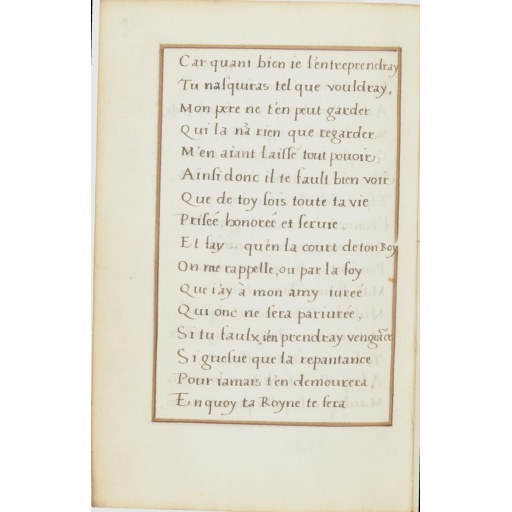 Car quant bien ie l'entreprendray
Tu nasquiras tel que vouldray,
Mon pere ne t'en peut garder
Qui la n'a rien que regarder
M'en aiant laissé tout pouoir.
Ainsi donc il te fault bien voir
Que de toy sois toute ta vie
Priseé honoreé et seruie.
Et fay qu'en la court de ton Roy
On me rappelle, ou par la foy
Que i'ay à mon amy iureé
Qui onc ne sera pariureé,
Si tu faulx, i'en prendray vengeāce
Si griefue que la repantance
Pour iamais t'en demourera,
En quoy ta Royne te sera